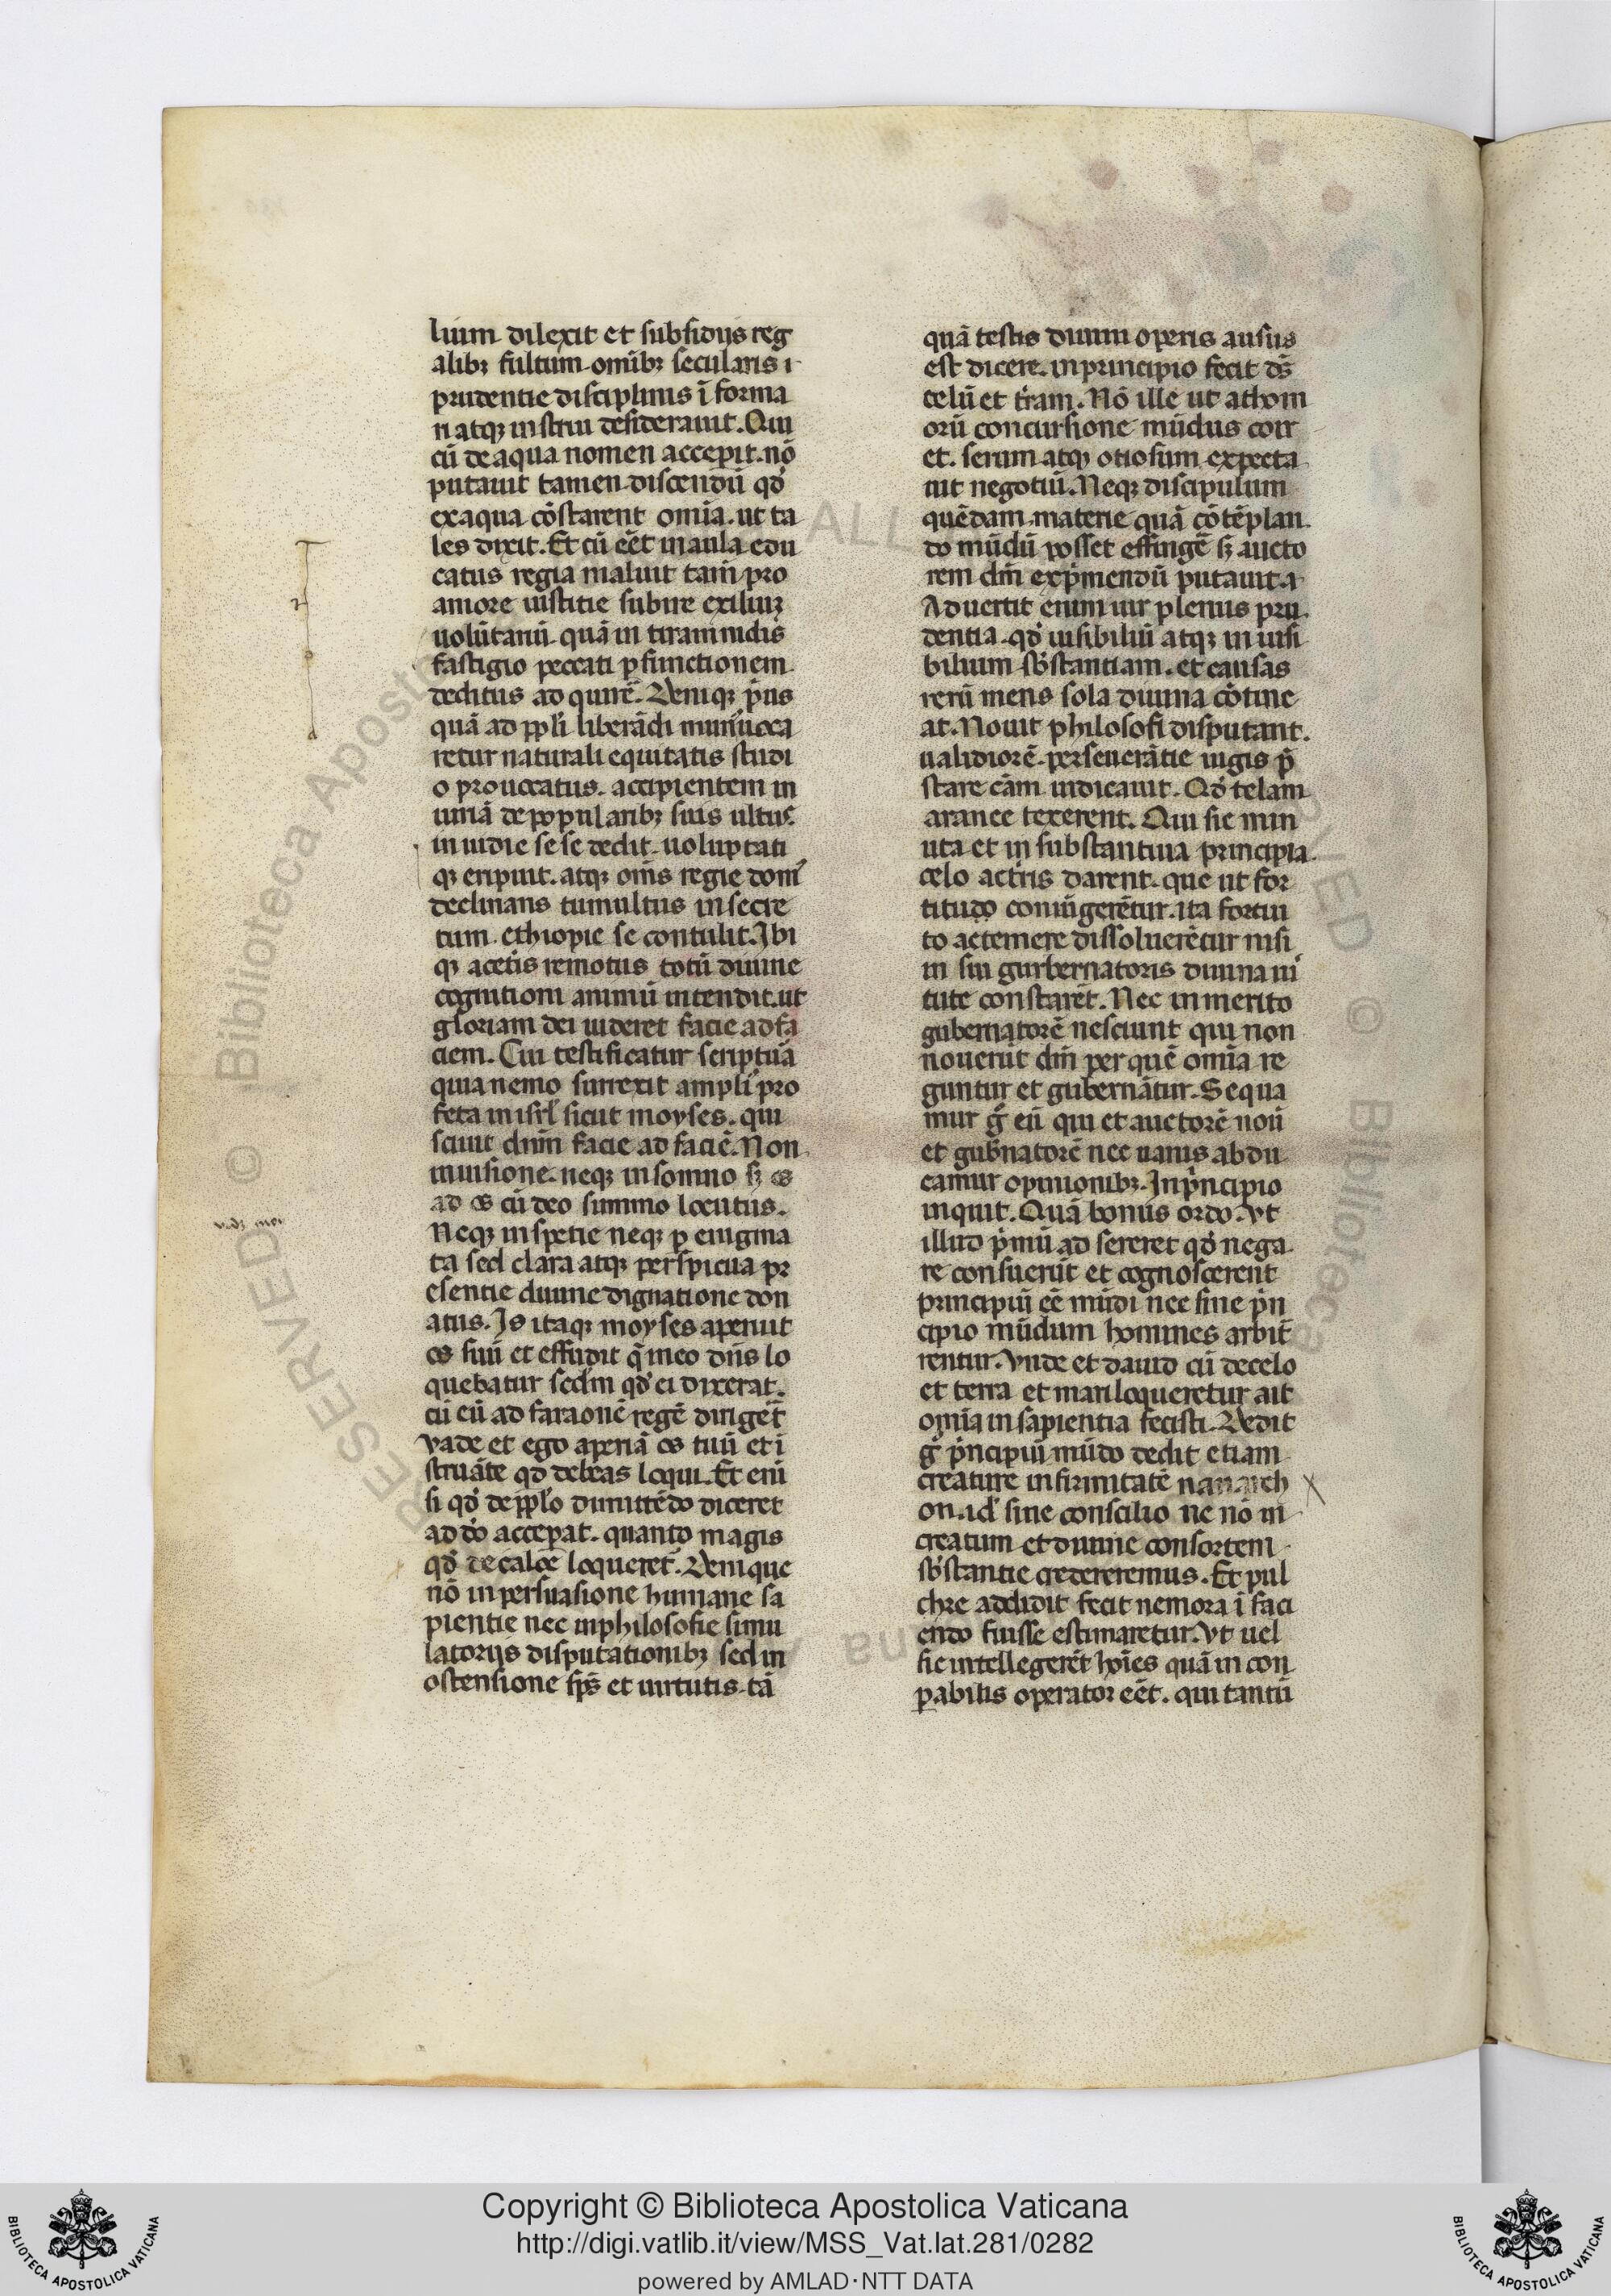 lium dilexit et subsidijs reg
alibꝫ fultum omībꝫ secularis i
prudentie disciplinis ī forma
ri atqꝫ instrui desiderauit. Qui
cū de aqua nomen accepit. nō
putauit tamen discendū qđ
ex aqua cōstarent omīa. ut ta
les dixit. Et cū eēt in aula edu
catus regia maluit tam̄ pro
amore iustitie subire exiliuꝫ
uolūtariū quā in tirannidis
fastigio peccati ꝑfunctionem
deditus ad quirē. Deniqꝫ p̄us
quā ad ppl̄i liberādi mun̄ uoca
retur naturali equitatis studi
o prouocatus. accipientem in
iuriā de popularibꝫ suis ultus
inuidie se se dedit. uoluptati
qꝫ eripuit. atqꝫ om̄s regie dom̄
declinans tumultus in secre
tum ethiopie se contulit. Ibi
qꝫ a cet̄is remotus totū diuine
cognitioni animū intendit. ut
gloriam dei uideret facie ad fa
ciem. Cui testificatur scriptura
quia nemo surrexit ampli' pro
feta in isrl̄ sicut moyses. qui
sciuit dn̄m facie ad faciē. Non
in uisione. neqꝫ in somno sꝫ os
ad os cū deo summo locutus.
Neqꝫ in spetie neqꝫ ꝑ enigma
ta sed clara atqꝫ perspicua pr
esentie diuine dignatione don
atus. Is itaqꝫ moyses aperuit
os suū et effudit q̄ in eo dn̄s lo
quebatur sedm̄ qđ ei dixerat.
cū eū ad faraonē regē dirigēt
Vade et ego aperiā os tuū et i
struāte qđ debeas loqui. Et eni
si qđ de pplo dimittēdo diceret
ad đo acceperat. quanto magis
qđ de caloe loqueret. Denique
nō in persuasione humane sa
pientie nec in philosofie simu
latorijs disputationibꝫ sed in
ostensione sp̄s et uirtutis tā
quā testis diuini operis ausus
est dicere. in principio fecit ds̄
celū et t̄ram. Nō ille ut athom
orū concursione mūdus coir
et. serum atqꝫ otiosum expecta
uit negotiū. Neqꝫ discipulum
quēdam materie quā cōtēplan
do mūdū posset effingē sꝫ aucto
rem dm̄ exp̄mendū putauit. a
Aduertit enim uir plenus pru
dentia. qđ uisibiliū atqꝫ in uisi
bilium sb̄stantiam. et causas
rerū mens sola diuina cōtine
at. Nō uit philosofi disputant.
ualidiorē perseuerātie iugis p̄
stare cām indicauit. Qđ telam
aranee texerent. Qui sic min
uta et in substantiua principia
celo ac t̄ris darent. que ut for
titudo coniūgerētur. ita fortui
to ac temere dissoluerētur nisi
in sui gurbernatoris diuina ui
tute constarēt. Nec inmerito
gubernatorē nesciunt qui non
nouerūt dm̄ per quē omīa re
guntur et gubernātur. Sequa
mur ḡ eū qui et auctorē noū
et gub̄natorē nec uanis abdu
camur opinionibꝫ. In p̄ncipio
inquit. Quā bonus ordo. Vt
illud p̄mū ad sereret qđ nega
re consuerūt et cognoscerent
principiū eē mūdi nec sine p̄n
cipio mūdum homines arbit̄
rentur. Vnde et dauid cū de celo
et terra et mari loqueretur ait
omīa in sapientia fecisti. Dedit
ḡ p̄ncipiū mūdo dedit etiam
creature infirmitatē nanarch
on. id' sine conscilio ne nō in
creatum et diuine consortem
sb̄stantie crederemus. Et pul
chre addidit fecit ne mora i faci
endo fuisse estimaretur. Vt uel
sic intellegerēt hoīes quā in con
ꝑabilis operator eēt. qui tantū